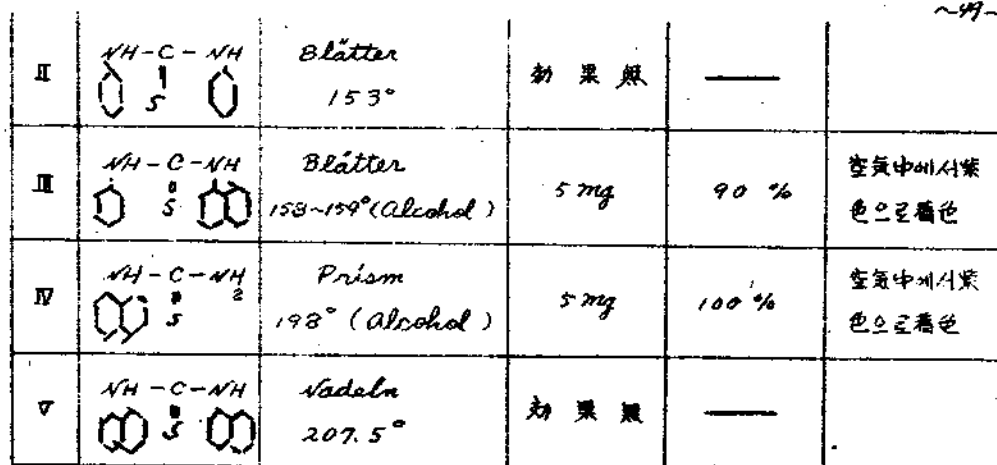 ~49~
II
NH-C-NH
S
Blätter
153°
効果無
——
III
NH-C-NH
S
Blätter
158~159°(Alcohol)
5 mg
90 %
空気中에서紫
色으로着色
IV
NH-C-NH2
S
Prism
198° (Alcohol)
5 mg
100 %
空気中에서紫
色으로着色
V
NH-C-NH
S
Nadeln
207.5°
効果無
——